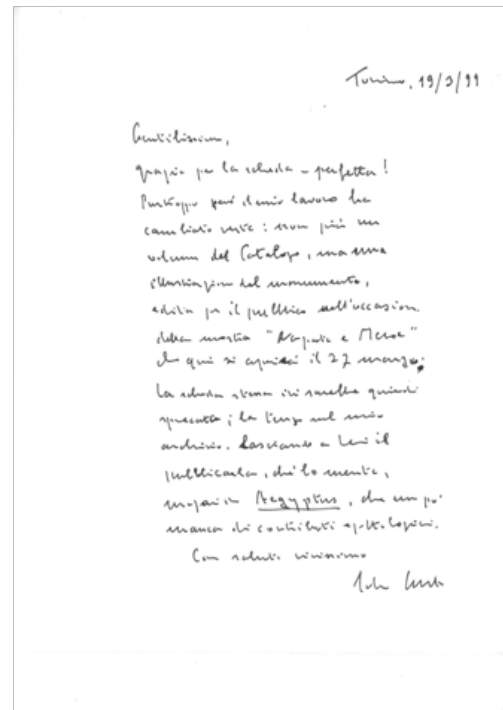 Torino, 19/3/99
Gentilissimo,
grazie per la scheda – perfetta!
Purtroppo però il mio lavoro ha
cambiato veste: non più un
volume del Catalogo, ma una
illustrazione del monumento,
edita per il pubblico nell'occasione
della mostra "Napata e Meroe"
che qui si aprirà il 27 marzo;
la scheda stessa ivi sarebbe quindi
sprecata; la tengo nel mio
archivio, lasciando a Lei il
pubblicarla, ché lo merita,
magari in Aegyptus, che un po'
manca di contributi egittologici.
Con saluti vivissimi